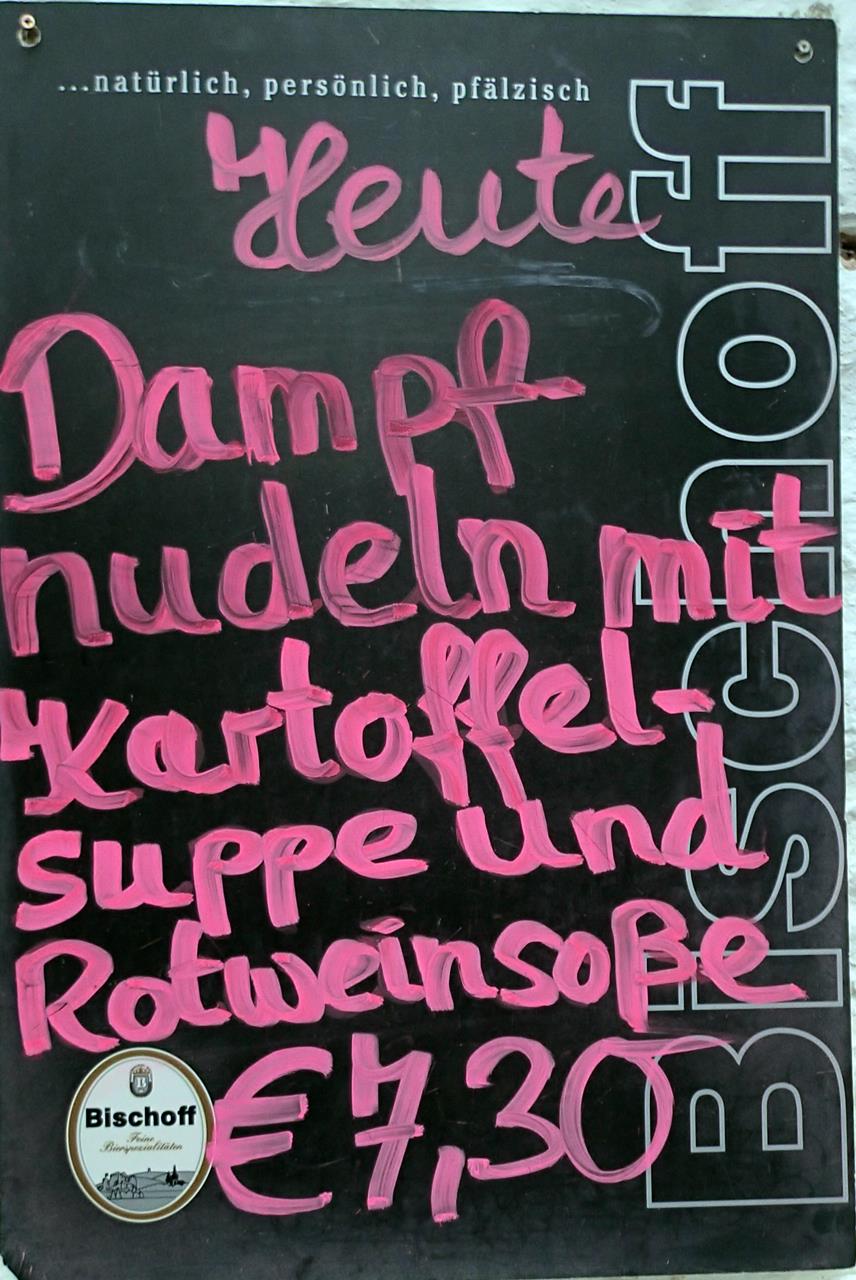 ...natürlich, persönlich, pfälzisch
Heute
Dampf
nudeln mit
Kartoffel-
suppe und
Rotweinsoße
€ 7,30
Bischoff
Bischoff
Feine
Bierspezialitäten